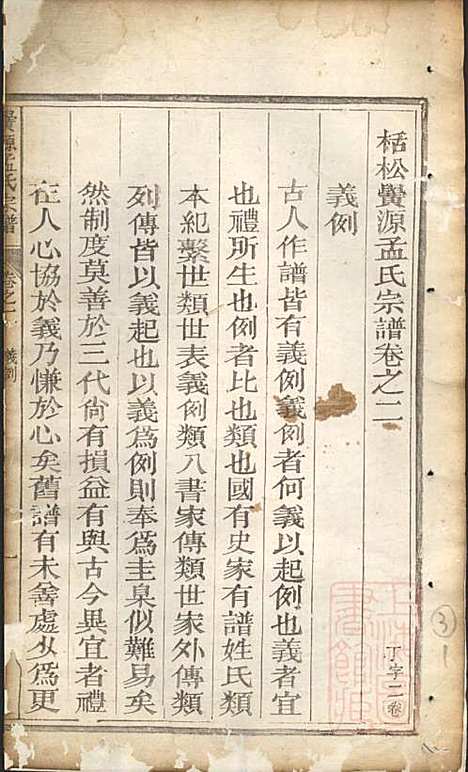 栝松黌源孟氏宗譜卷之二
丁字二卷
義例
古人作譜皆有義例義例者何義以起例也義者宜
也禮所生也例者比也類也國有史家有譜姓氏類
本紀繫世類世表義例類八書家傳類世家外傳類
列傳皆以義起也以義爲例則奉爲圭臬似難易矣
然制度莫善於三代尙有損益有與古今異宜者禮
在人心協於義乃慊於心矣舊譜有未善處必爲更
源孟氏宗譜
卷之二
義例
一
③
1